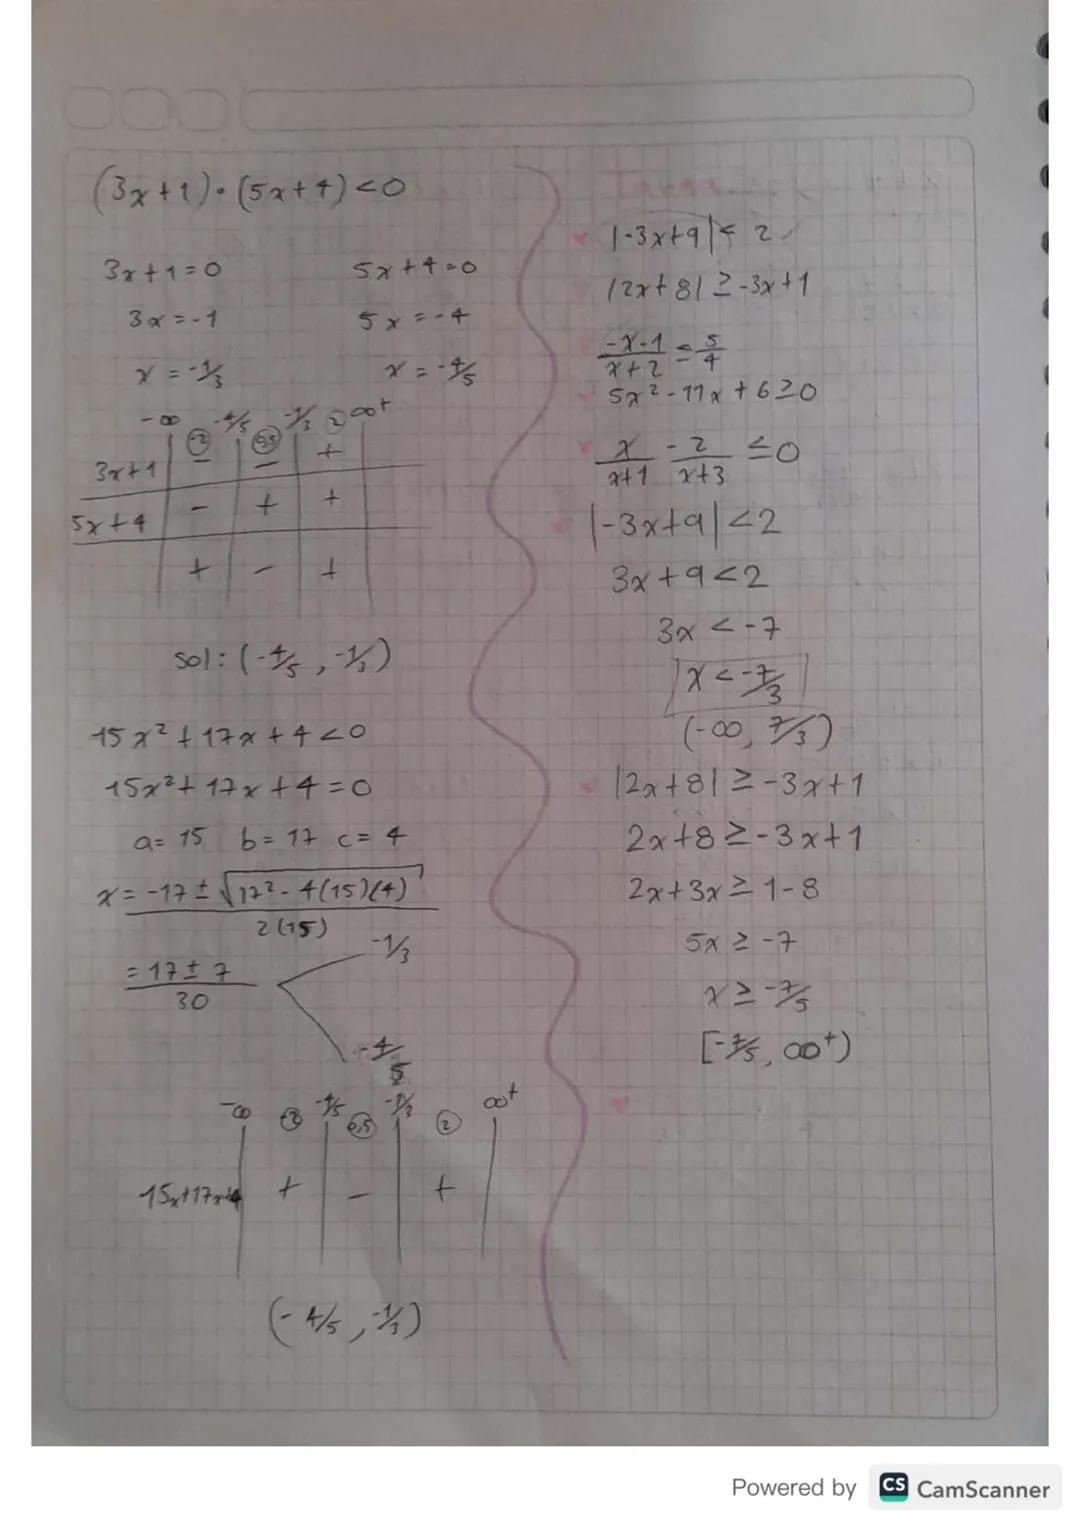 (3x+1)·(5x+4)<0
3x+1=0 5x+4=0
3x=-1 5x=-4
x=-1/3 x=-4/5
-∞ -2 -4/5 0,5 -1/3 2 ∞+
3x+1 - - +
5x+4 - + +
+ - +
sol: (-4/5, -1/3)
15x²+17x+4<0
15x²+17x+4=0
a=15 b=17 c=4
x=-17±√17²-4(15)(4)
2(15)
=17±7
30
-1/3
-4/5
-∞ -2 -4/5 0,5 -1/3 2 ∞+
15x+17x+4 + - +
(-4/5, -1/3)
Tarea
|-3x+9|< 2
|2x+8|≥-3x+1
-x-1/x+2 ≤ 5/4
5x²-17x+6≥0
x/x+1 - 2/x+3 ≤0
|-3x+9|<2
3x+9<2
3x<-7
x<-7/3
(-∞, 7/3)
|2x+8|≥-3x+1
2x+8≥-3x+1
2x+3x≥1-8
5x≥-7
x≥-7/5
[-7/5, ∞+)
Powered by CS CamScanner